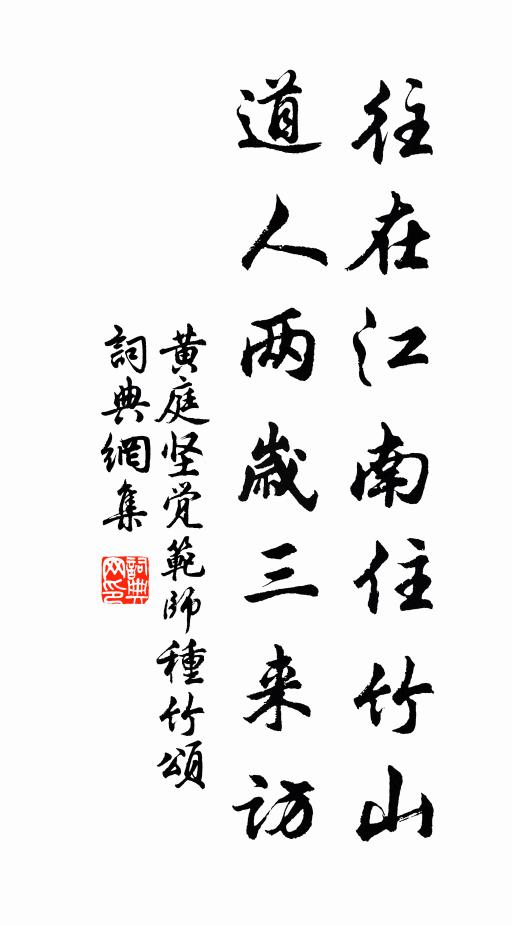 往在江南住竹山
道人两歲三来访
黄庭坚觉範師種竹頌
詞典網集
詞典
网印